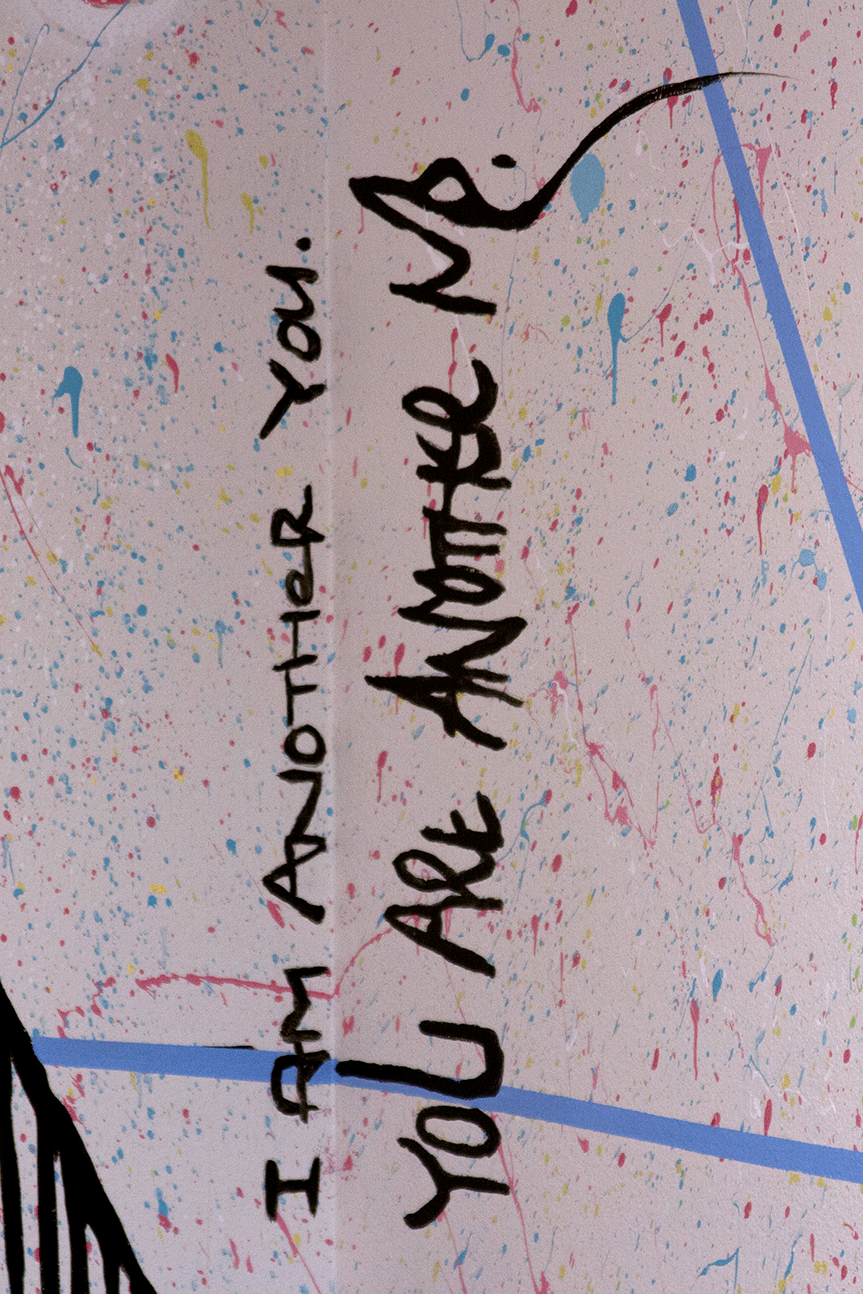 I AM ANOTHER YOU.
YOU ARE ANOTHER ME.